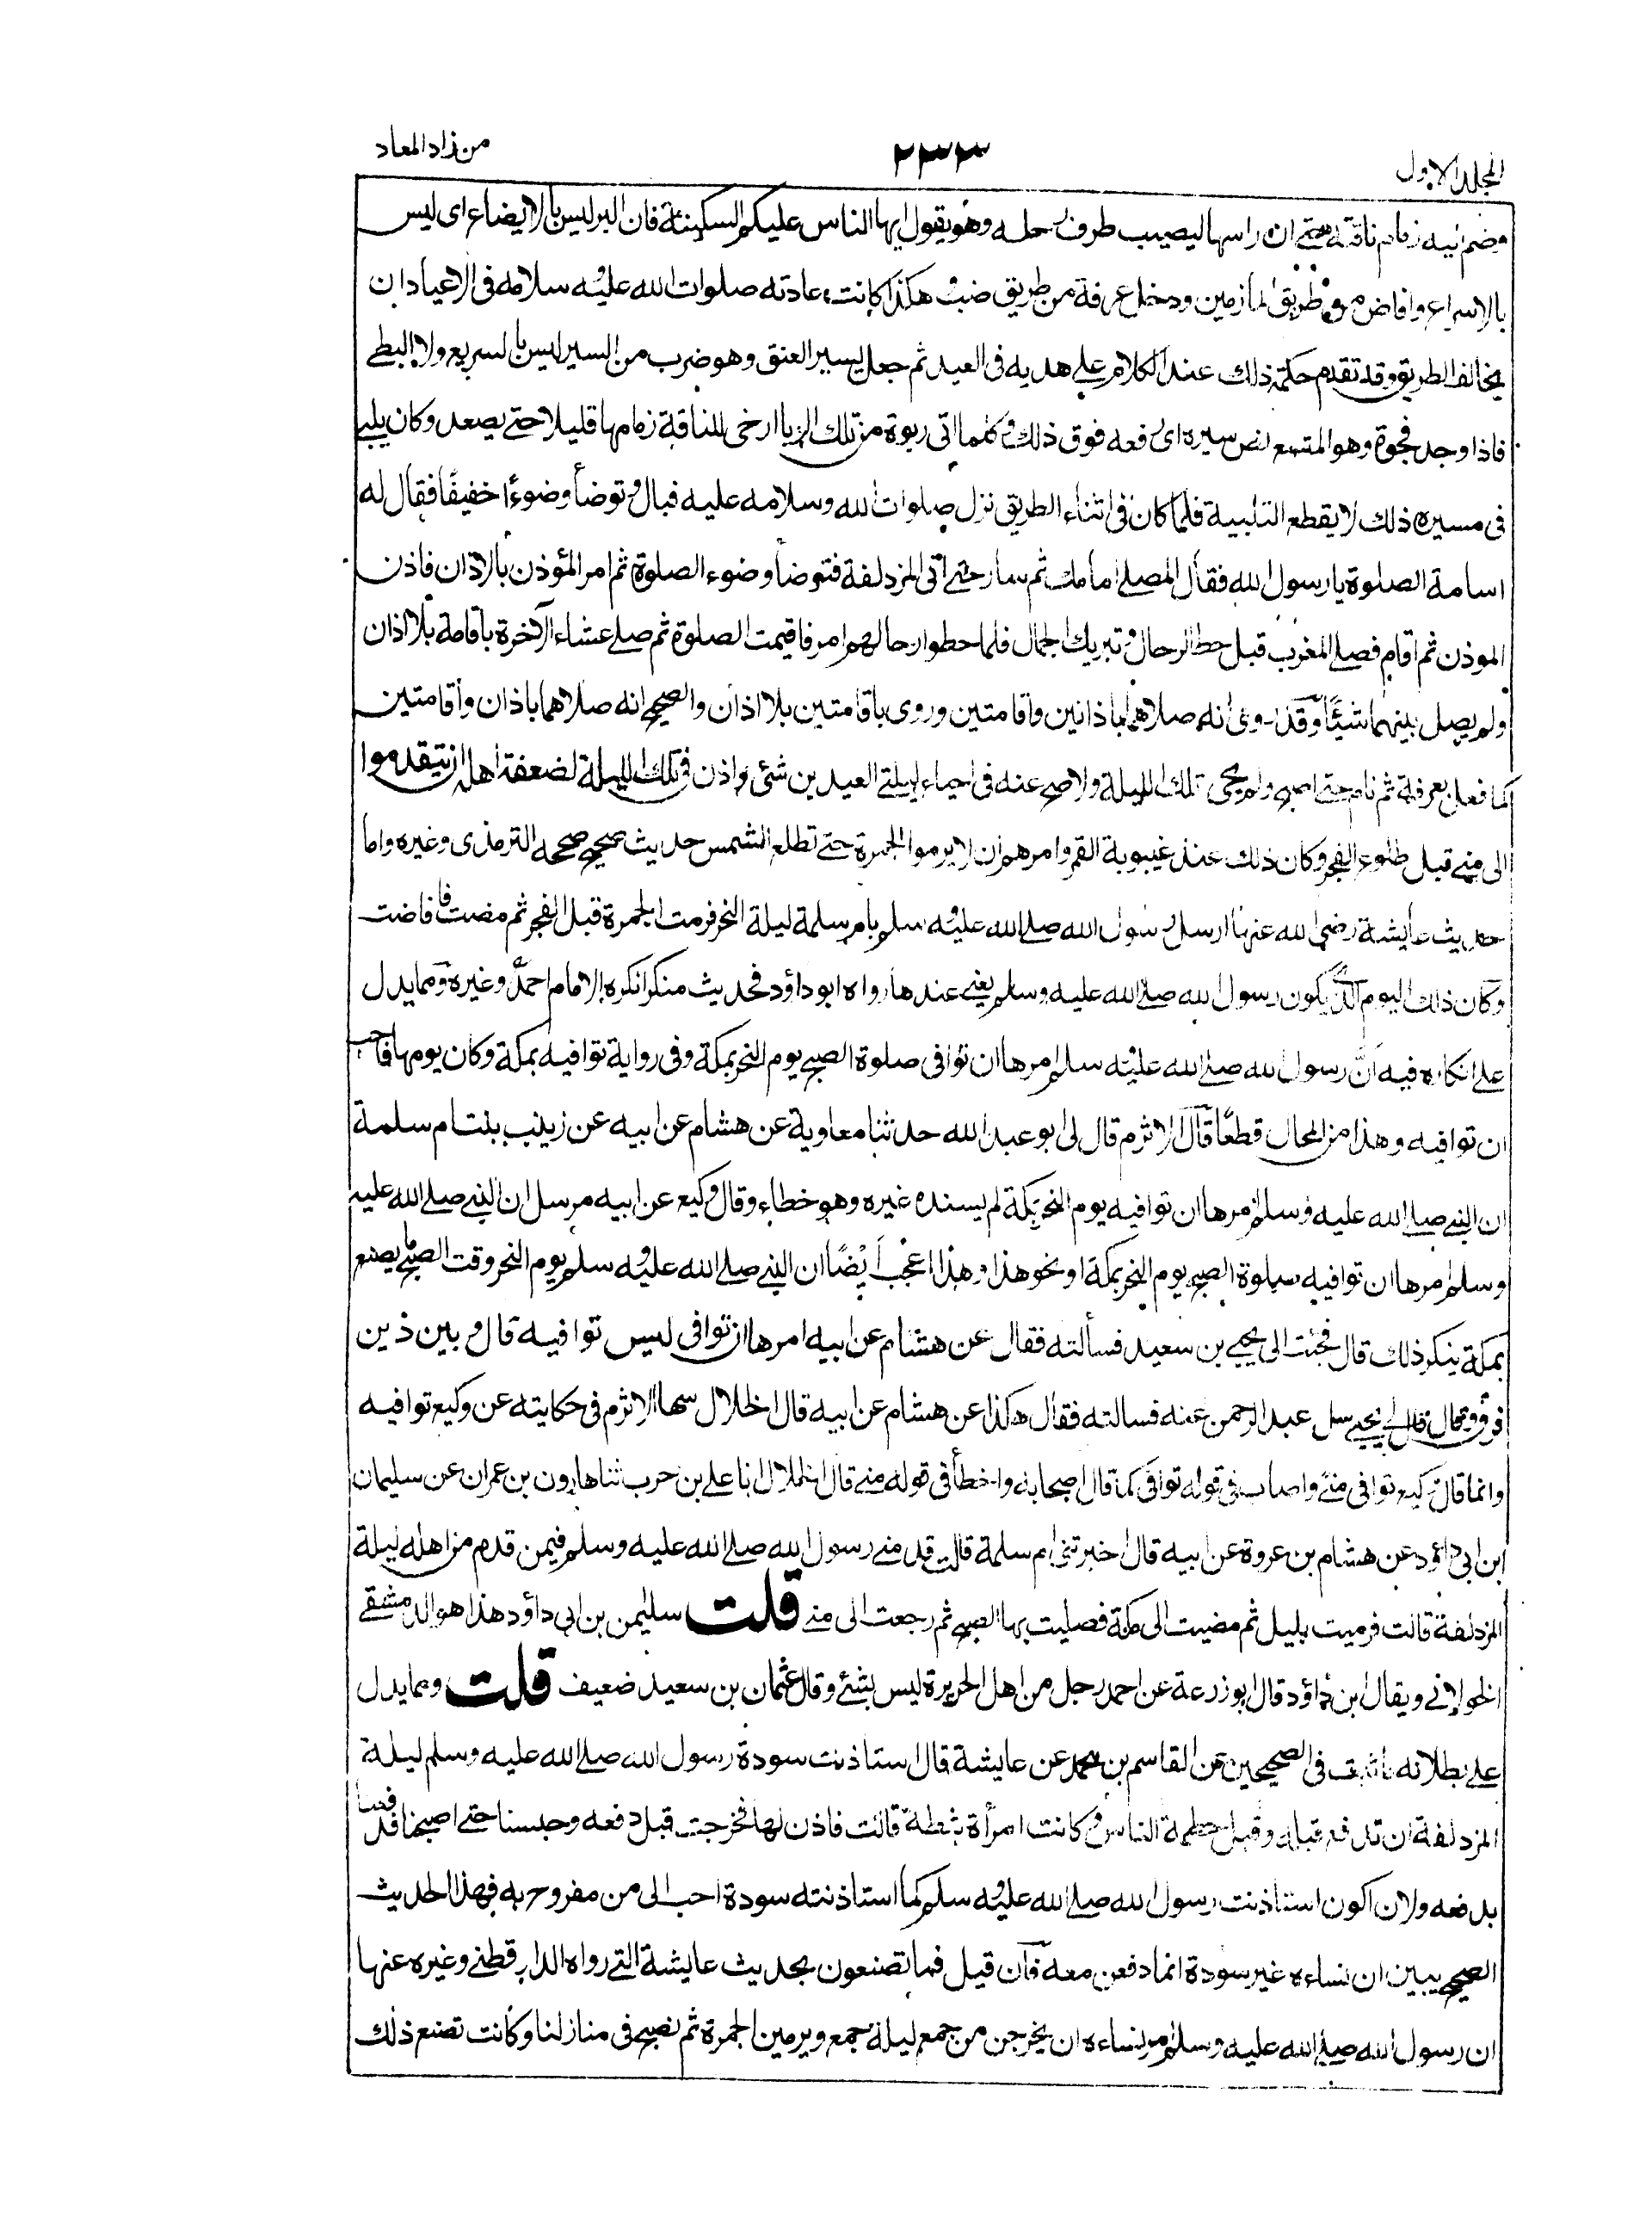 المجلد الاول
٢٣٣
من زاد المعاد
وضم اليه زمام ناقته حتى ان راسها ليصيب طرف رحله وهو يقول ايها الناس عليكم السكينة فان البر ليس بالايضاع اى ليس
بالاسراع وافاض من طريق المازمين ودخل عرفة من طريق ضب وهكذا كانت عادته صلوات الله عليه وسلامه فى الاعياد ان
يخالف الطريق وقد تقدم حكمة ذلك عند الكلام على هديه فى العيد ثم جعل يسير العنق وهو ضرب من السير ليس بالسريع ولا البطى
فاذا وجد فجوة وهو المتسع نص سيره اى رفعه فوق ذلك وكلما اتى ربوة من تلك الربا ارخى للناقة زمامها قليلا حتى يصعد وكان يلبى
فى مسيره ذلك لا يقطع التلبية فلما كان فى اثناء الطريق نزل صلوات الله وسلامه عليه فبال وتوضأ وضوءًا خفيفًا فقال له
اسامة الصلوة يا رسول الله فقال المصلى امامك ثم سار حتى اتى المزدلفة فتوضأ وضوء الصلوة ثم امر المؤذن بالاذان فاذن
الموذن ثم اقام فصلى المغرب قبل حط الرحال وتبريك الجمال فلما حطوا رحالهم امر فاقيمت الصلوة ثم صلى عشاء الآخرة باقامة بلا اذان
ولم يصل بينهما شيئًا وقد روى انه صلاهما باذانين واقامتين وروى باقامتين بلا اذان والصحيح انه صلاهما باذان واقامتين
كما فعل بعرفة ثم نام حتى اصبح ولم يحى تلك الليلة ولا صح عنه فى احياء ليلتى العيدين شئ واذن فى تلك الليلة لضعفة اهله ان يتقدموا
الى منى قبل طلوع الفجر وكان ذلك عند غيبوبة القمر وامرهم ان لا يرموا الجمرة حتى تطلع الشمس حديث صحيح صححه الترمذى وغيره واما
حديث عايشة رضى الله عنها ارسل رسول الله صلى الله عليه وسلم بام سلمة ليلة النحر فرمت الجمرة قبل الفجر ثم مضت فافاضت
وكان ذلك اليوم الذى يكون رسول الله صلى الله عليه وسلم يعنى عندها رواه ابو داؤد فحديث منكر انكره الامام احمد وغيره ومما يدل
على انكاره فيه ان رسول الله صلى الله عليه وسلم امرها ان توافى صلوة الصبح يوم النحر بمكة وفى رواية توافيه بمكة وكان يومها فاحب
ان توافيه وهذا من المحال قطعًا قال الاثرم قال لى ابو عبد الله حدثنا معاوية عن هشام عن ابيه عن زينب بنت ام سلمة
ان النبى صلى الله عليه وسلم امرها ان توافيه يوم النحر بمكة لم يسنده غيره وهو خطاء وقال وكيع عن ابيه مرسل ان النبى صلى الله عليه
وسلم امرها ان توافيه صلوة الصبح يوم النحر بمكة او نحو هذا وهذا اعجب اَيْضًا ان النبى صلى الله عليه وسلم يوم النحر وقت الصبح ما يصنع
بمكة ينكر ذلك قال فجئت الى يحيى بن سعيد فسألته فقال عن هشام عن ابيه امرها ان توافى ليس توافيه قال وبين ذين
فرق وقال قال لى يحيى سل عبد الرحمن عنه فسالته فقال هكذا عن هشام عن ابيه قال الخلال سها الاثرم فى حكايته عن وكيع توافيه
وانما قال وكيع توافى منى واصاب فى قوله توافى كما قال اصحابه واخطأ فى قوله منى قال الخلال انا على بن حرب ثنا هارون بن عمران عن سليمان
ابن ابى داؤد عن هشام بن عروة عن ابيه قال اخبرتنى ام سلمة قالت قدمنى رسول الله صلى الله عليه وسلم فيمن قدم من اهله ليلة
المزدلفة قالت فرميت بليل ثم مضيت الى مكة فصليت بها الصبح ثم رجعت الى منى قلت سليمن بن ابى داؤد هذا هو الدمشقى
الخولانى ويقال ابن داؤد قال ابو زرعة عن احمد رجل من اهل الجزيرة ليس بشئ وقال عثمان بن سعيد ضعيف قلت ومما يدل
على بطلانه ما ثبت فى الصحيحين عن القاسم بن محمد عن عايشة قال استاذنت سودة رسول الله صلى الله عليه وسلم ليلة
المزدلفة ان تدفع قبله وقبل حطمة الناس وكانت امرأة ثبطة قالت فاذن لها فخرجت قبل دفعه وحبسنا حتى اصبحنا فدفعنا
بدفعه ولان اكون استاذنت رسول الله صلى الله عليه وسلم كما استاذنته سودة احب الى من مفروح به فهذا الحديث
الصحيح يبين ان نساءه غير سودة انما دفعن معه فان قيل فما تصنعون بحديث عايشة التى رواه الدارقطنى وغيره عنها
ان رسول الله صلى الله عليه وسلم امر نساءه ان يخرجن من جمع ليلة جمع ويرمين الجمرة ثم نصبح فى منازلنا وكانت تصنع ذلك